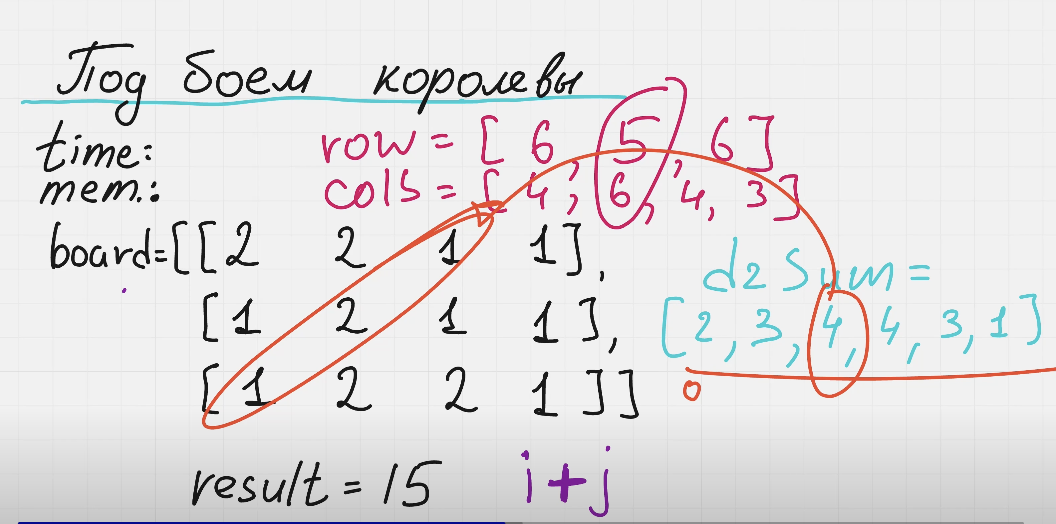 Под боем королевы
time:
row = [ 6, 5, 6]
mem.:
cols = [ 4, 6, 4, 3]
board=[[2 2 1 1],
[1 2 1 1],
[1 2 2 1]]
d2 Sum =
[2, 3, 4, 4, 3, 1]
0
result = 15
i+j